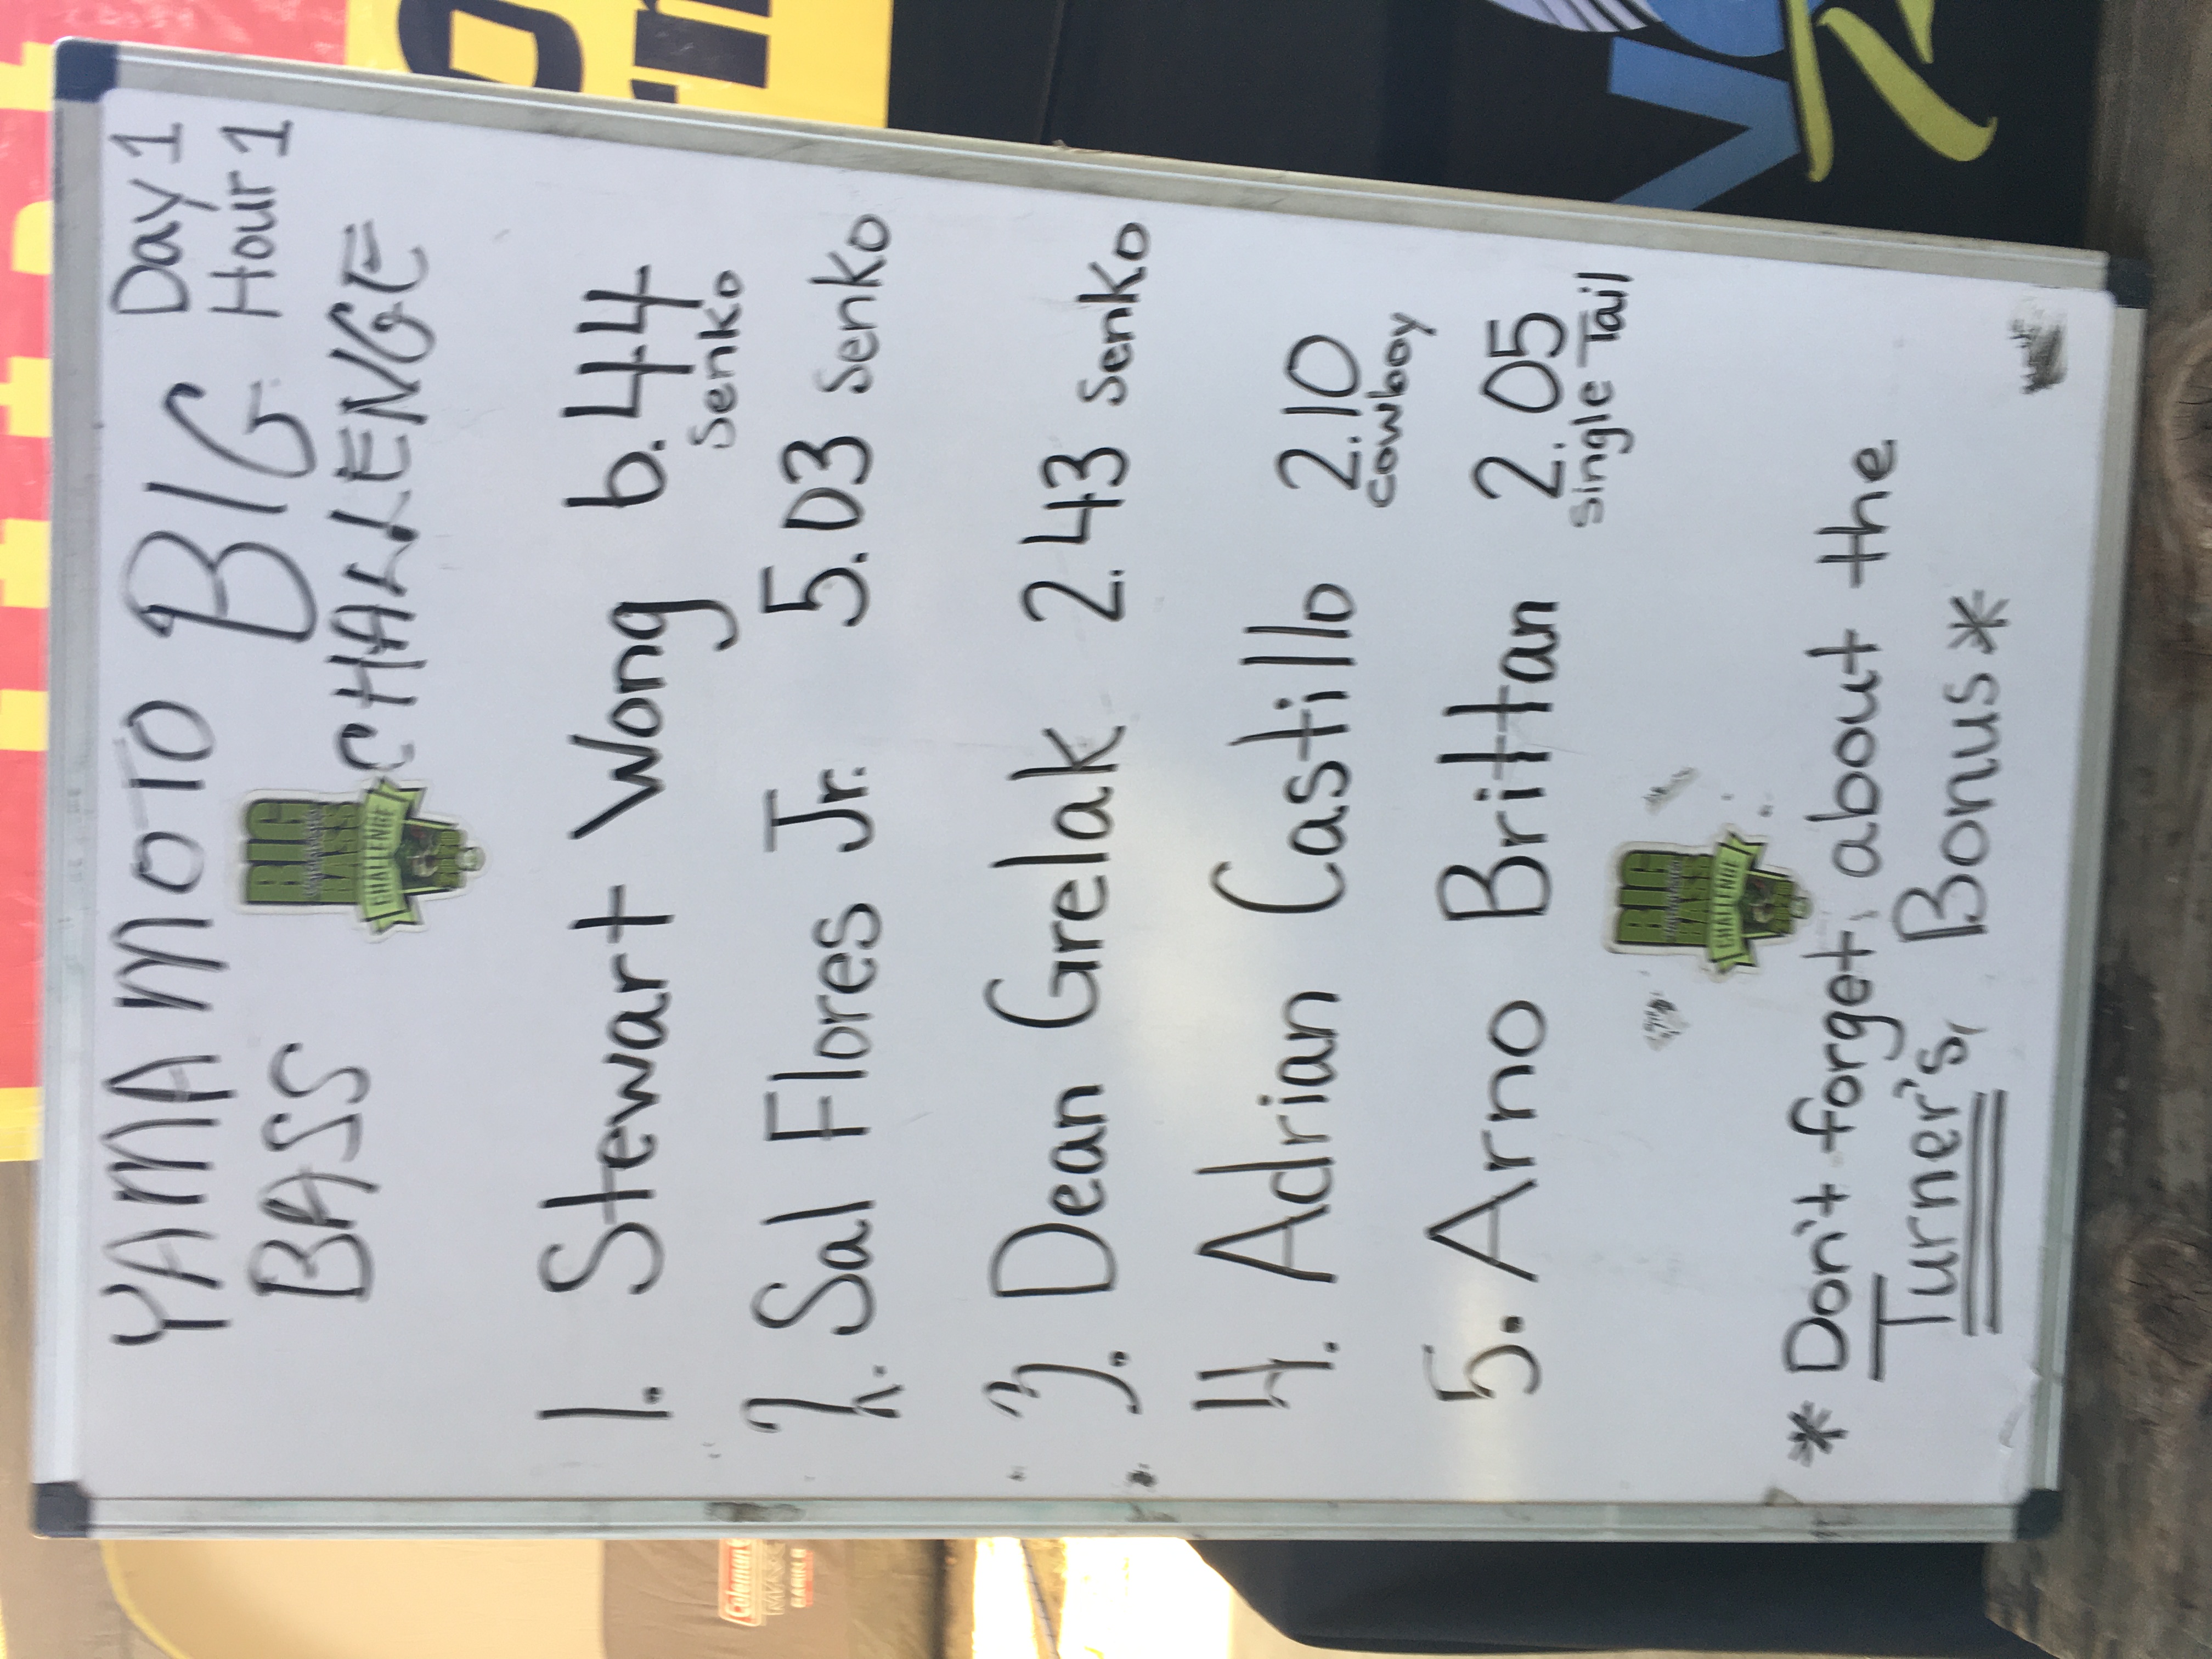 YAMAMOTO BIG Day 1
Hour 1
BASS CHALLENGE
BIG
BASS
CHALLENGE
1. Stewart Wong 6.44
Senko
2. Sal Flores Jr. 5.03 Senko
3. Dean Grelak 2.43 Senko
4. Adrian Castillo 2.10
Cowboy
5. Arno Brittan 2.05
Single Tail
BIG
BASS
CHALLENGE
* Don't forget about the
Turner's Bonus *
Coleman